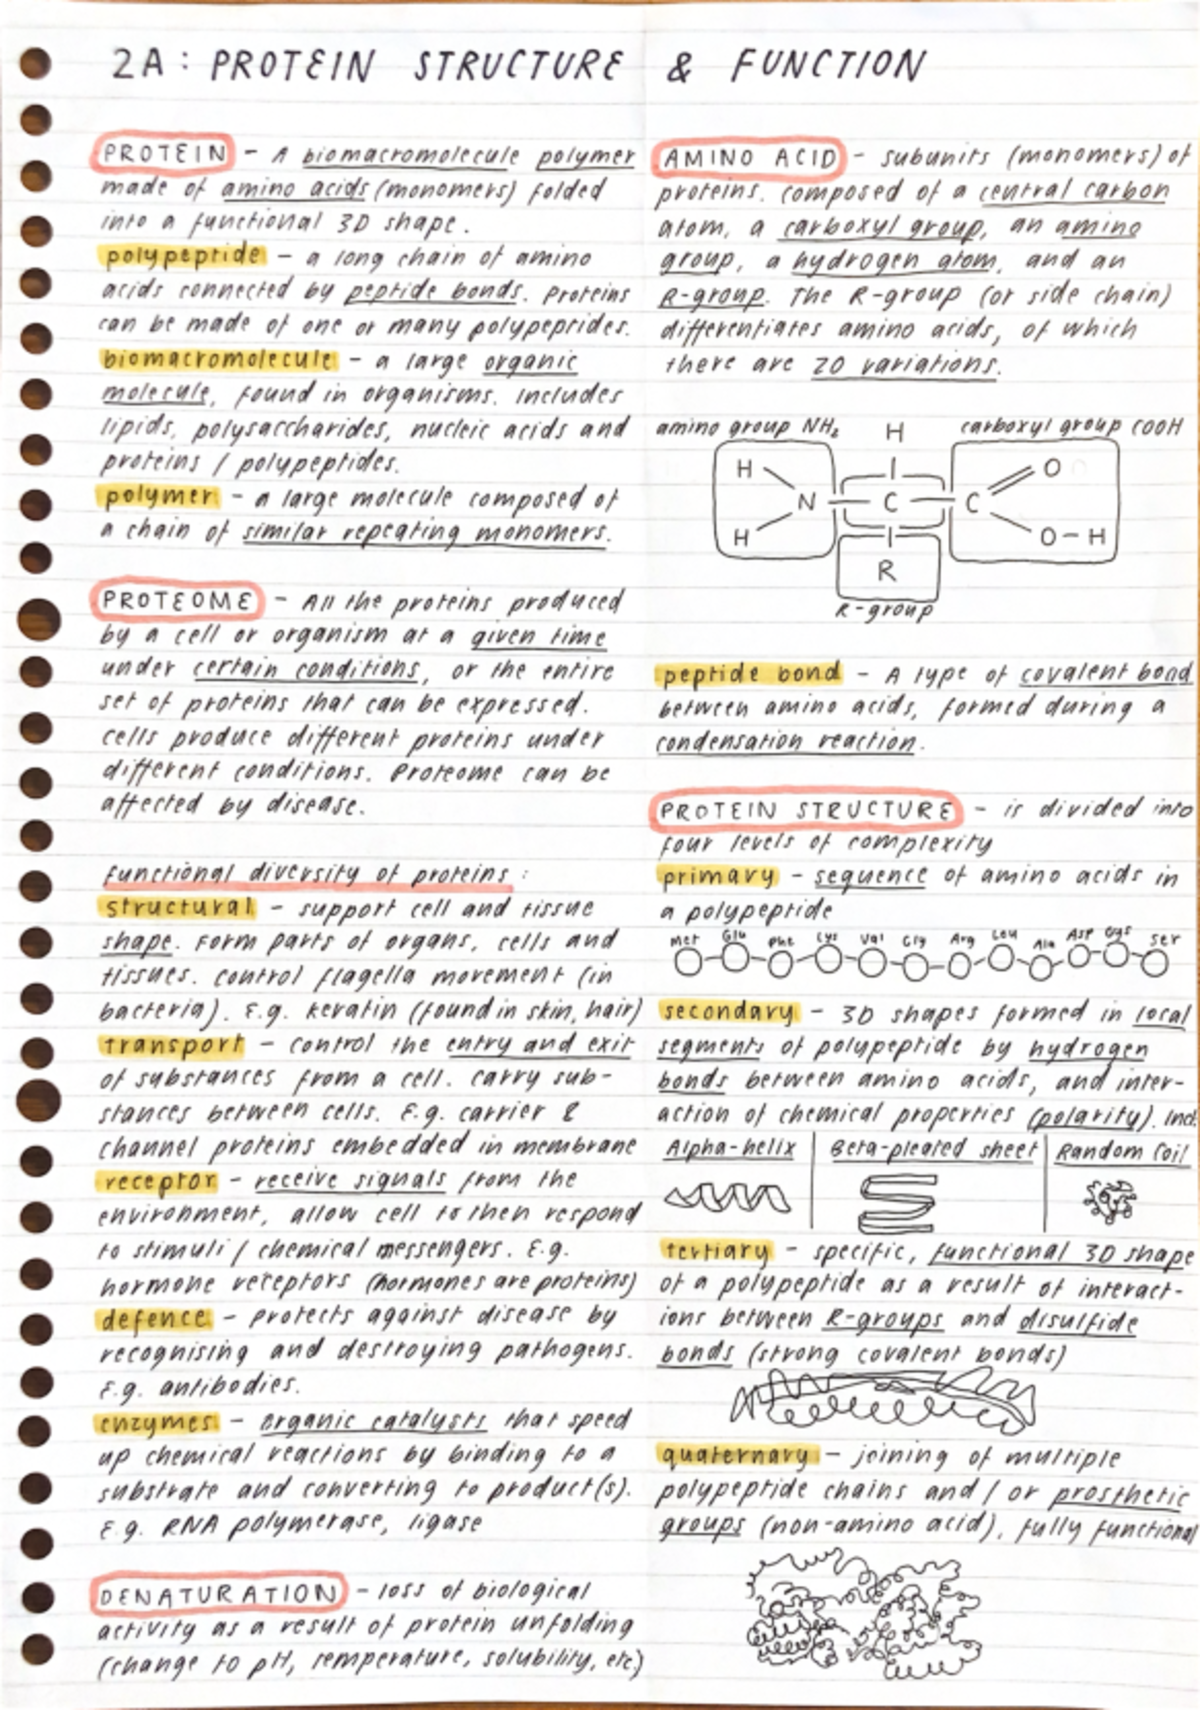 2A: PROTEIN STRUCTURE & FUNCTION
PROTEIN - A biomacromolecule polymer
made of amino acids (monomers) folded
into a functional 3D shape.
polypeptide - a long chain of amino
acids connected by peptide bonds. Proteins
can be made of one or many polypeptides.
biomacromolecule - a large organic
molecule, found in organisms. Includes
lipids, polysaccharides, nucleic acids and
proteins / polypeptides.
polymer - a large molecule composed of
a chain of similar repeating monomers.
PROTEOME - All the proteins produced
by a cell or organism at a given time
under certain conditions, or the entire
set of proteins that can be expressed.
cells produce different proteins under
different conditions. Proteome can be
affected by disease.
functional diversity of proteins:
structural - support cell and tissue
shape. Form parts of organs, cells and
tissues. control flagella movement (in
bacteria). E.g. keratin (found in skin, hair)
transport - control the entry and exit
of substances from a cell. carry sub-
stances between cells. E.g. carrier &
channel proteins embedded in membrane
receptor - receive signals from the
environment, allow cell to then respond
to stimuli / chemical messengers. E.g.
hormone receptors (hormones are proteins)
defence - protects against disease by
recognising and destroying pathogens.
E.g. antibodies.
enzymes - organic catalysts that speed
up chemical reactions by binding to a
substrate and converting to product(s).
E.g. RNA polymerase, ligase
DENATURATION - loss of biological
activity as a result of protein unfolding
(change to pH, temperature, solubility, etc)
AMINO ACID - subunits (monomers) of
proteins. composed of a central carbon
atom, a carboxyl group, an amino
group, a hydrogen atom, and an
R-group. The R-group (or side chain)
differentiates amino acids, of which
there are 20 variations.
amino group NH₂ H carboxyl group COOH
H O
N C C
H O-H
R
R-group
peptide bond - A type of covalent bond
between amino acids, formed during a
condensation reaction.
PROTEIN STRUCTURE - is divided into
four levels of complexity
primary - sequence of amino acids in
a polypeptide
Met Glu Phe Cys Val Gly Arg Leu Ala Asp Cys Ser
secondary - 3D shapes formed in local
segments of polypeptide by hydrogen
bonds between amino acids, and inter-
action of chemical properties (polarity). Incl.
Alpha-helix Beta-pleated sheet Random Coil
tertiary - specific, functional 3D shape
of a polypeptide as a result of interact-
ions between R-groups and disulfide
bonds (strong covalent bonds)
quaternary - joining of multiple
polypeptide chains and / or prosthetic
groups (non-amino acid), fully functional